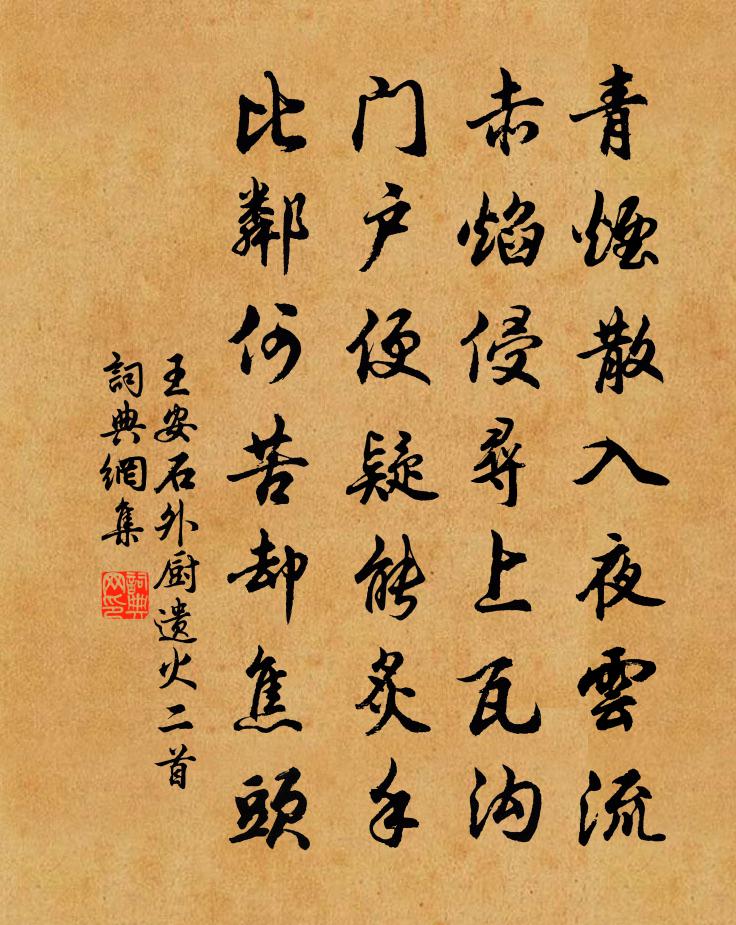 青煙散入夜雲流
赤焰侵尋上瓦沟
门户便疑能炙手
比鄰何苦却焦頭
王安石外厨遗火二首
詞典網集
詞典網印